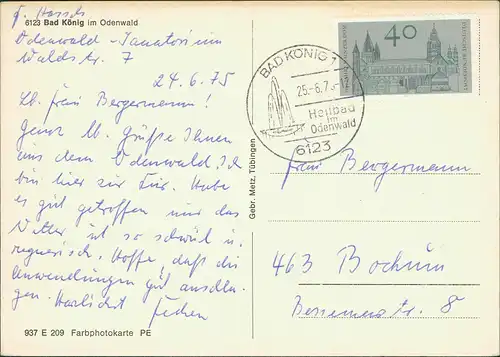 6123 Bad König im Odenwald
Odenwald-Sanatorium
Waldstr. 7
24.6.75
Lb. Frau Bergermann!
Ganz lb. Grüße Ihnen
aus dem Odenwald. Ich
bin hier zur Kur. Habe
es gut getroffen nur das
Wetter ist so schwül u.
regnerisch. Hoffe, daß die
Anwendungen gut anschla-
gen. Herzlichst
937 E 209 Farbphotokarte PE
Gebr. Metz, Tübingen
BAD KÖNIG 1
25.-6.7
Heilbad
im
Odenwald
6123
40
Frau Bergermann
463 Bochum
Bessemerstr. 8